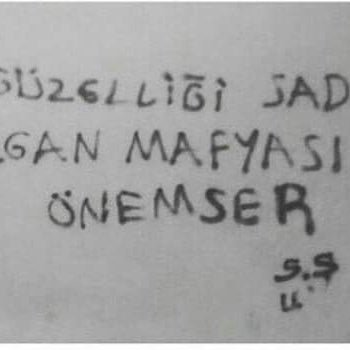 GÜZELLİĞİ SAD
GAN MAFYASI
ÖNEMSER
S.Ş